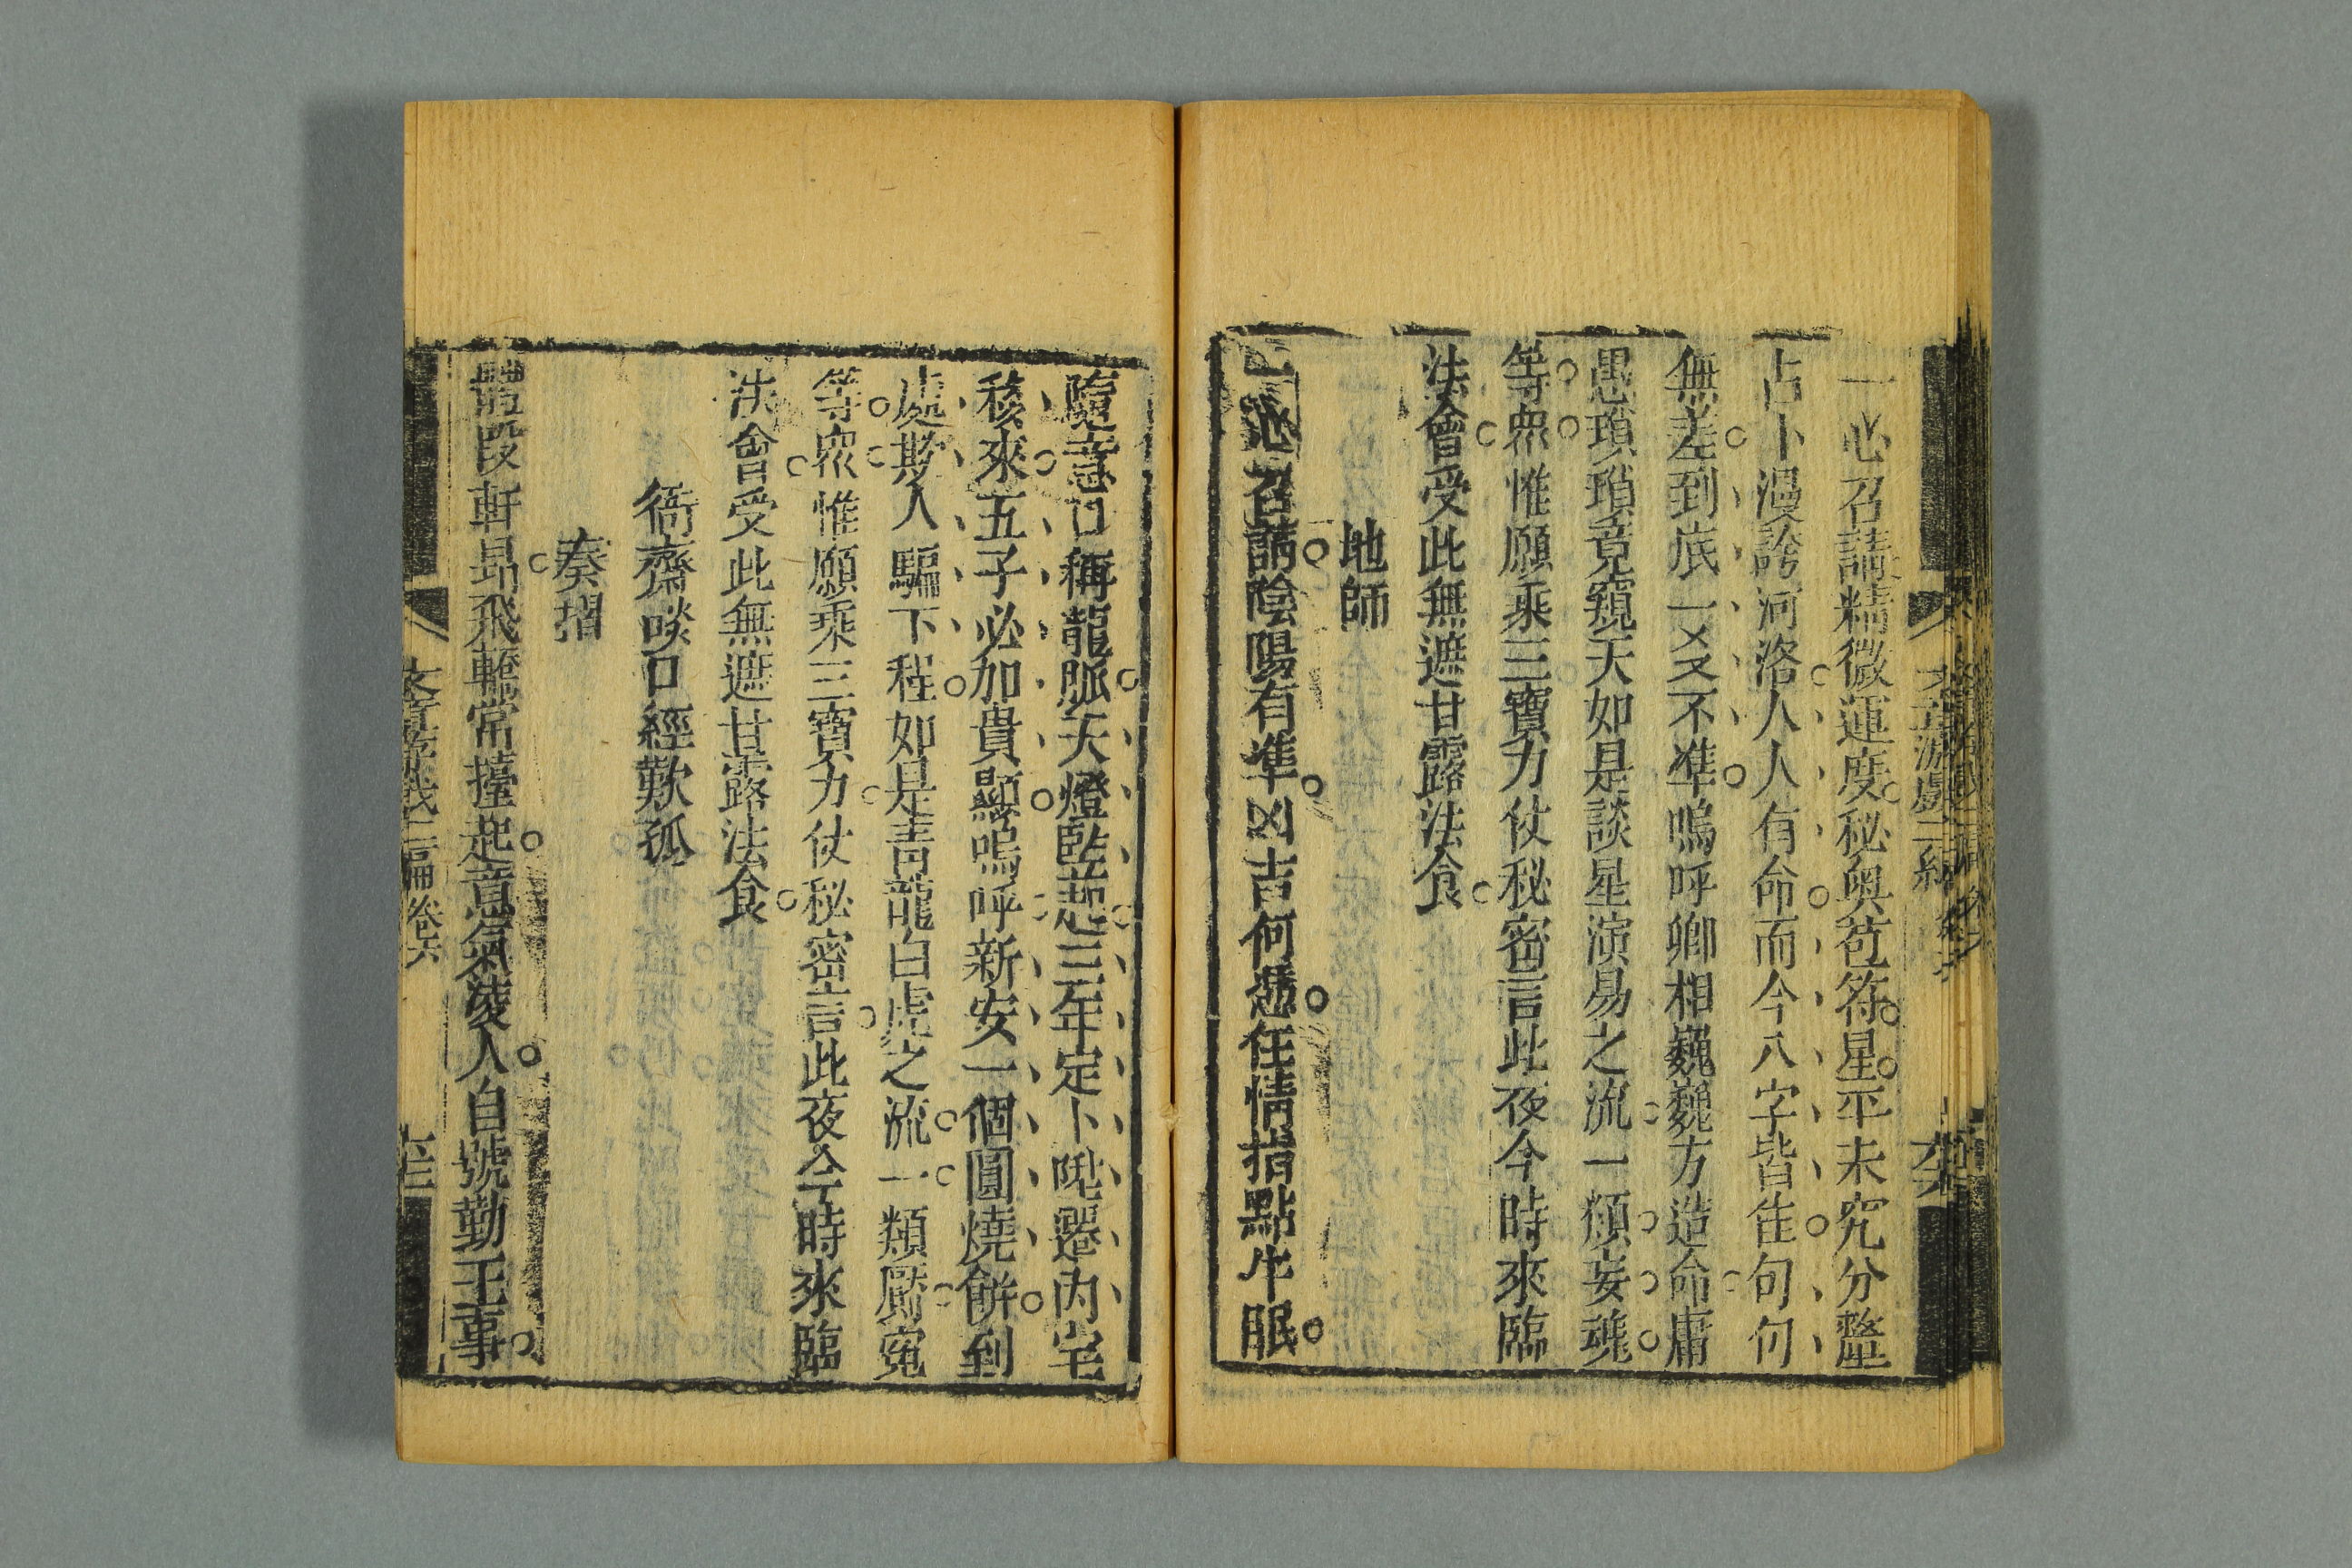 一心召請精微運度秘奥苞符星平未究分釐
占卜漫誇河洛人人有命而今八字皆佳句句
無差到底一爻又不準嗚呼卿相巍巍方造命庸
愚瑣瑣竟窺天如是談星演易之流一類妄魂
等衆惟願乘三寶力仗秘密言此夜今時來臨
法會受此無遮甘露法食
地師
一心召請陰陽有準凶吉何遷任情指點牛眠
隨意口稱龍脈天燈監起三年定卜陞遷内宅
移來五子必加貴顯嗚呼新安一個圓燒餅到
處欺人騙下程如是青龍白虎之流一類厭寃
等衆惟願乘三寶力仗秘密言此夜今時來臨
法會受此無遮甘露法食
衙齋啖口經歎孤
奏摺
體段軒昂飛轎常擡起意氣凌人自號勤王事
文章游戲三編 卷六